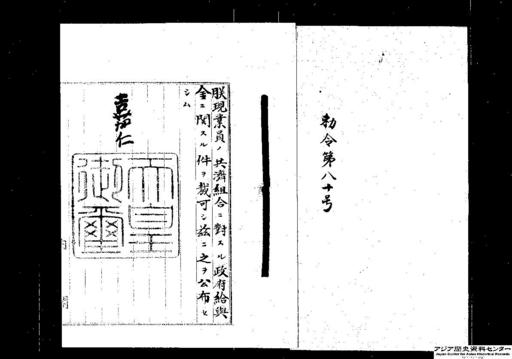 勅令第八十号
朕現業員ノ共済組合ニ對スル政府給與
金ニ関スル件ヲ裁可シ茲ニ之ヲ公布セ
シム
嘉仁
天皇
御璽
アジア歴史資料センター
Japan Center for Asian Historical Records